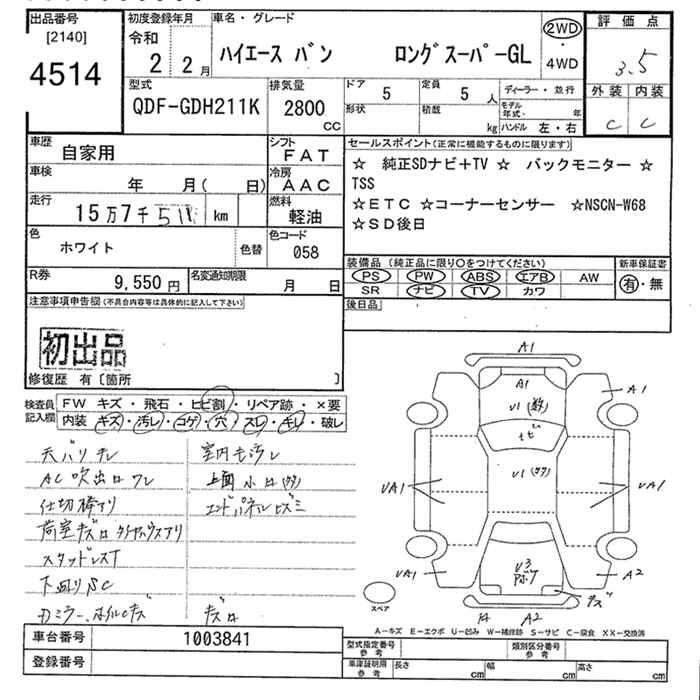 出品番号
[2140]
4514
初度登録年月
令和
2 2月
車名・グレード
ハイエース バン ロングスーパーGL
2WD
・
4WD
評価点
3.5
外装 内装
C C
型式
QDF-GDH211K
排気量
2800
CC
ドア 5
形状
定員 5人
積載 kg
ディーラー・並行
モデル年式 年
ハンドル 左・右
車歴
自家用
車検
年 月( 日)
走行
15万7千511 km
色
ホワイト
色替
R券
9,550円
名変通知期限
月 日
シフト
FAT
冷房
AAC
燃料
軽油
色コード
058
セールスポイント(正常に機能するものに限ります)
☆ 純正SDナビ+TV ☆ バックモニター ☆
TSS
☆ETC ☆コーナーセンサー ☆NSCN-W68
☆SD後日
装備品(純正品に限り○をつけてください)
PS PW ABS エアB AW
SR ナビ TV カワ
新車保証書
有・無
後日品
注意事項申告欄(不具合内容等は具体的に記入して下さい)
初出品
修復歴 有〔箇所 〕
検査員記入欄
FW キズ・飛石・ヒビ割・リペア跡・×要
内装 キズ・汚レ・コゲ・穴・スレ・キレ・破レ
天バリ
AC吹出口ワレ
仕切棒アリ
荷室キズ
スタッドレスT
下廻りSC
室内モ汚レ
上面小
エンドパネルヒズミ
キズ
A1
A1
U1
A1
U1
UA1
UA1
UA1
U3
A2
キズ
A2
スペア
A-キズ E-エクボ U-凹み W-補修跡 S-サビ C-腐食 XX-交換済
車台番号
1003841
登録番号
型式指定番号
参考
類別区分番号
参考
車庫証明用
参考
長さ cm 幅 cm 高さ cm